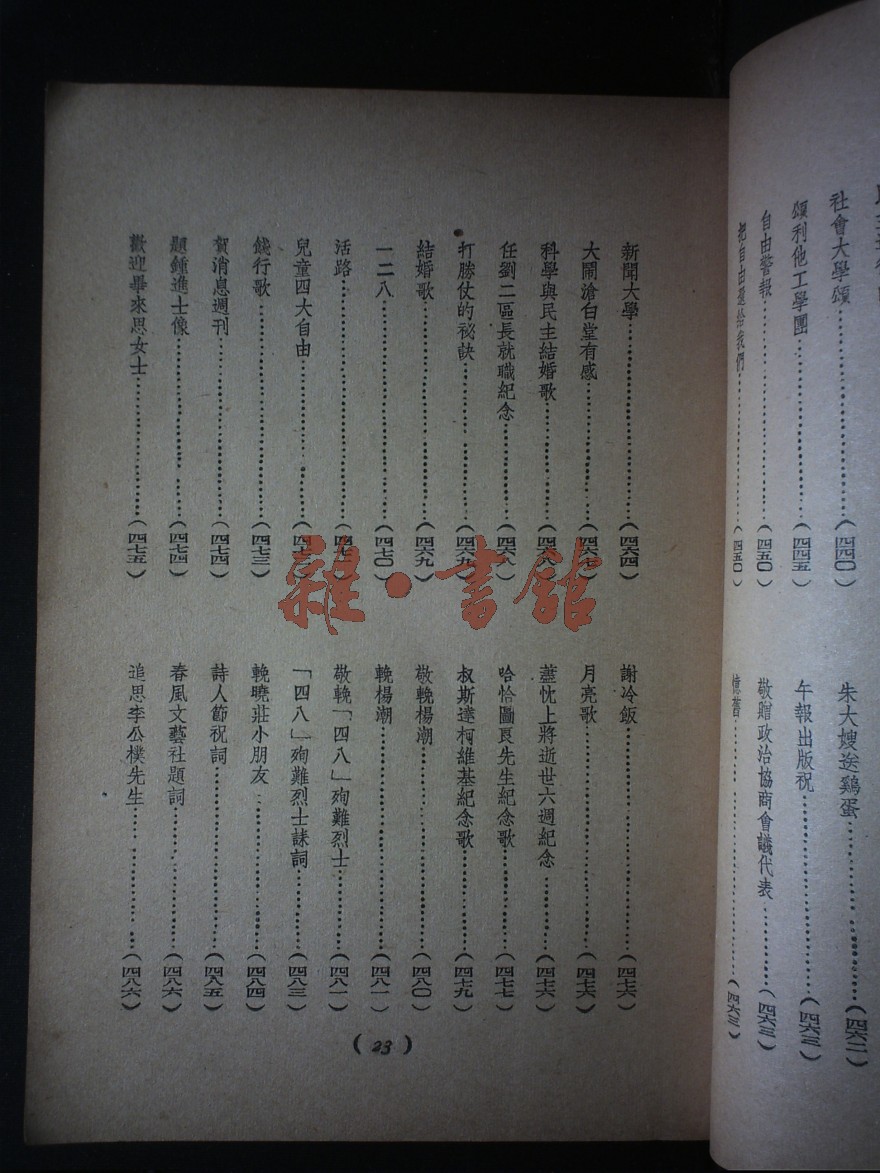 社會大學頌……(四四〇)
頌利他工學團……(四四五)
自由警報……(四五〇)
把自由還給我們……(四五〇)
朱大嫂送鷄蛋……(四六二)
午報出版祝……(四六三)
敬贈政治協商會議代表……(四六三)
憶舊……(四六三)
新聞大學……(四六四)
大鬧滄白堂有感……(四六七)
科學與民主結婚歌……(四六八)
任劉二區長就職紀念……(四六八)
打勝仗的祕訣……(四六九)
結婚歌……(四六九)
一二八……(四七〇)
活路……
兒童四大自由……
餞行歌……(四七三)
賀消息週刊……(四七四)
題鍾進士像……(四七四)
歡迎畢來思女士……(四七五)
謝冷飯……(四七六)
月亮歌……(四七六)
藎忱上將逝世六週紀念……(四七六)
哈恰圖良先生紀念歌……(四七七)
叔斯達柯維基紀念歌……(四七九)
敬輓楊潮……(四八〇)
輓楊潮……(四八一)
敬輓「四八」殉難烈士……(四八一)
「四八」殉難烈士誄詞……(四八三)
輓曉莊小朋友……(四八四)
詩人節祝詞……(四八五)
春風文藝社題詞……(四八六)
追思李公樸先生……(四八六)
(23)
雜·書館